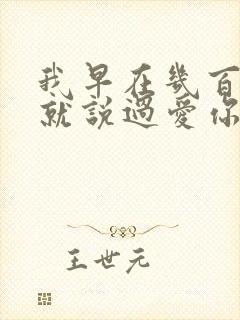 我早在幾百
就說過愛你
王世元